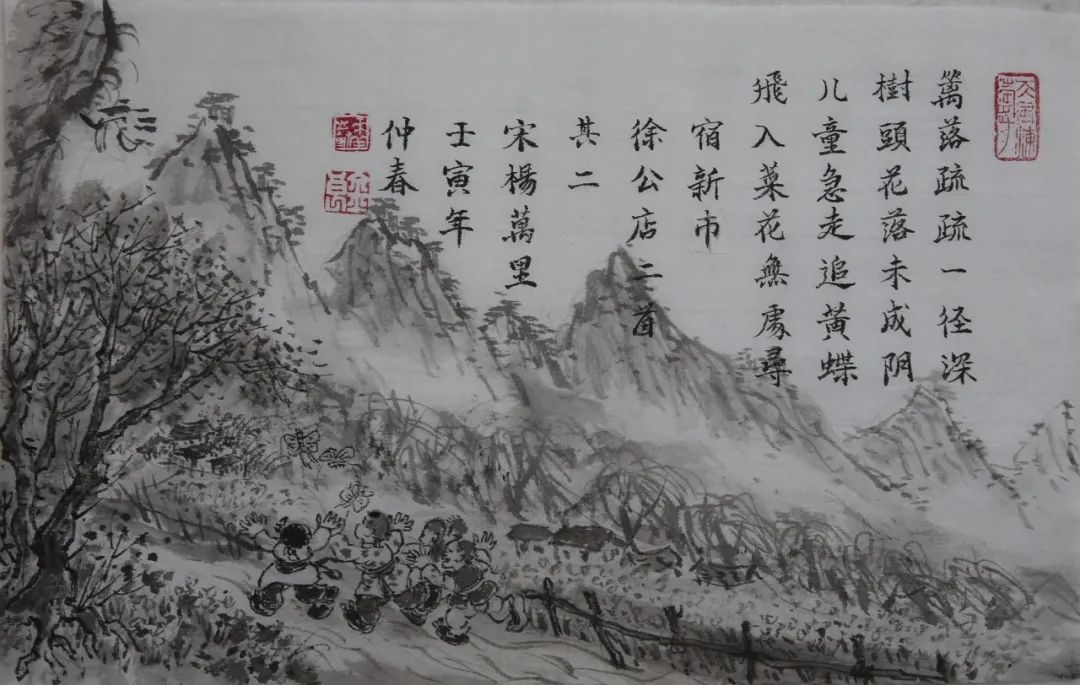 篱落疏疏一径深
樹頭花落未成阴
儿童急走追黃蝶
飛入菜花無處尋
宿新市
徐公店二首
其二
宋楊萬里
壬寅年
仲春